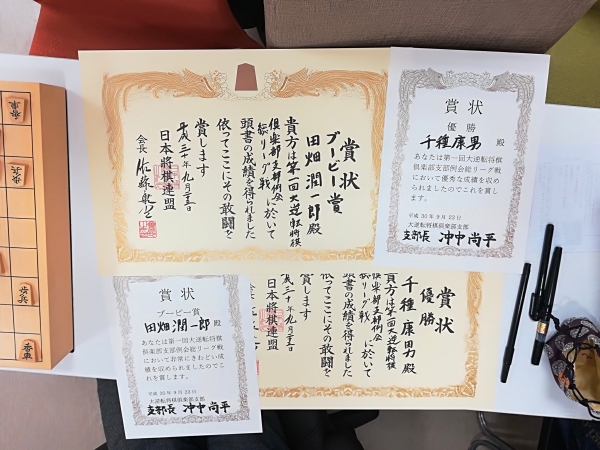 賞状
ブービー賞
田畑 潤一郎殿
貴方は第一回大逆転将棋
倶楽部支部例会
総リーグ戦に於いて
頭書の成績を得られました
依ってここにその敢闘を
賞します
平成三十年九月二十三日
日本将棋連盟
会長 佐藤康光
賞状
優勝
千種康男 殿
あなたは第一回大逆転将棋
倶楽部支部例会総リーグ戦
において優秀な成績を収め
られましたのでこれを賞し
ます。
平成 30 年 9 月 23 日
大逆転将棋倶楽部支部
支部長 沖中尚平
賞状
優勝
千種 康男 殿
貴方は第一回大逆転将棋
倶楽部支部例会
総リーグ戦に於いて
頭書の成績を得られました
依ってここにその敢闘を
賞します
成三十年九月二十三日
日本将棋連盟
賞状
ブービー賞
田畑潤一郎 殿
あなたは第一回大逆転将棋
倶楽部支部例会総リーグ戦
において非常にきわどい成
績を収められましたのでこ
れを賞します。
平成 30 年 9 月 23 日
大逆転将棋倶楽部支部
支部長 沖中尚平
歩兵
香車